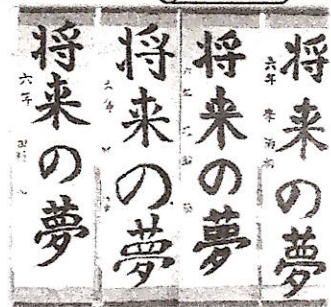 将来の夢
六年
将来の夢
将来の夢
六年
将来の夢
六年